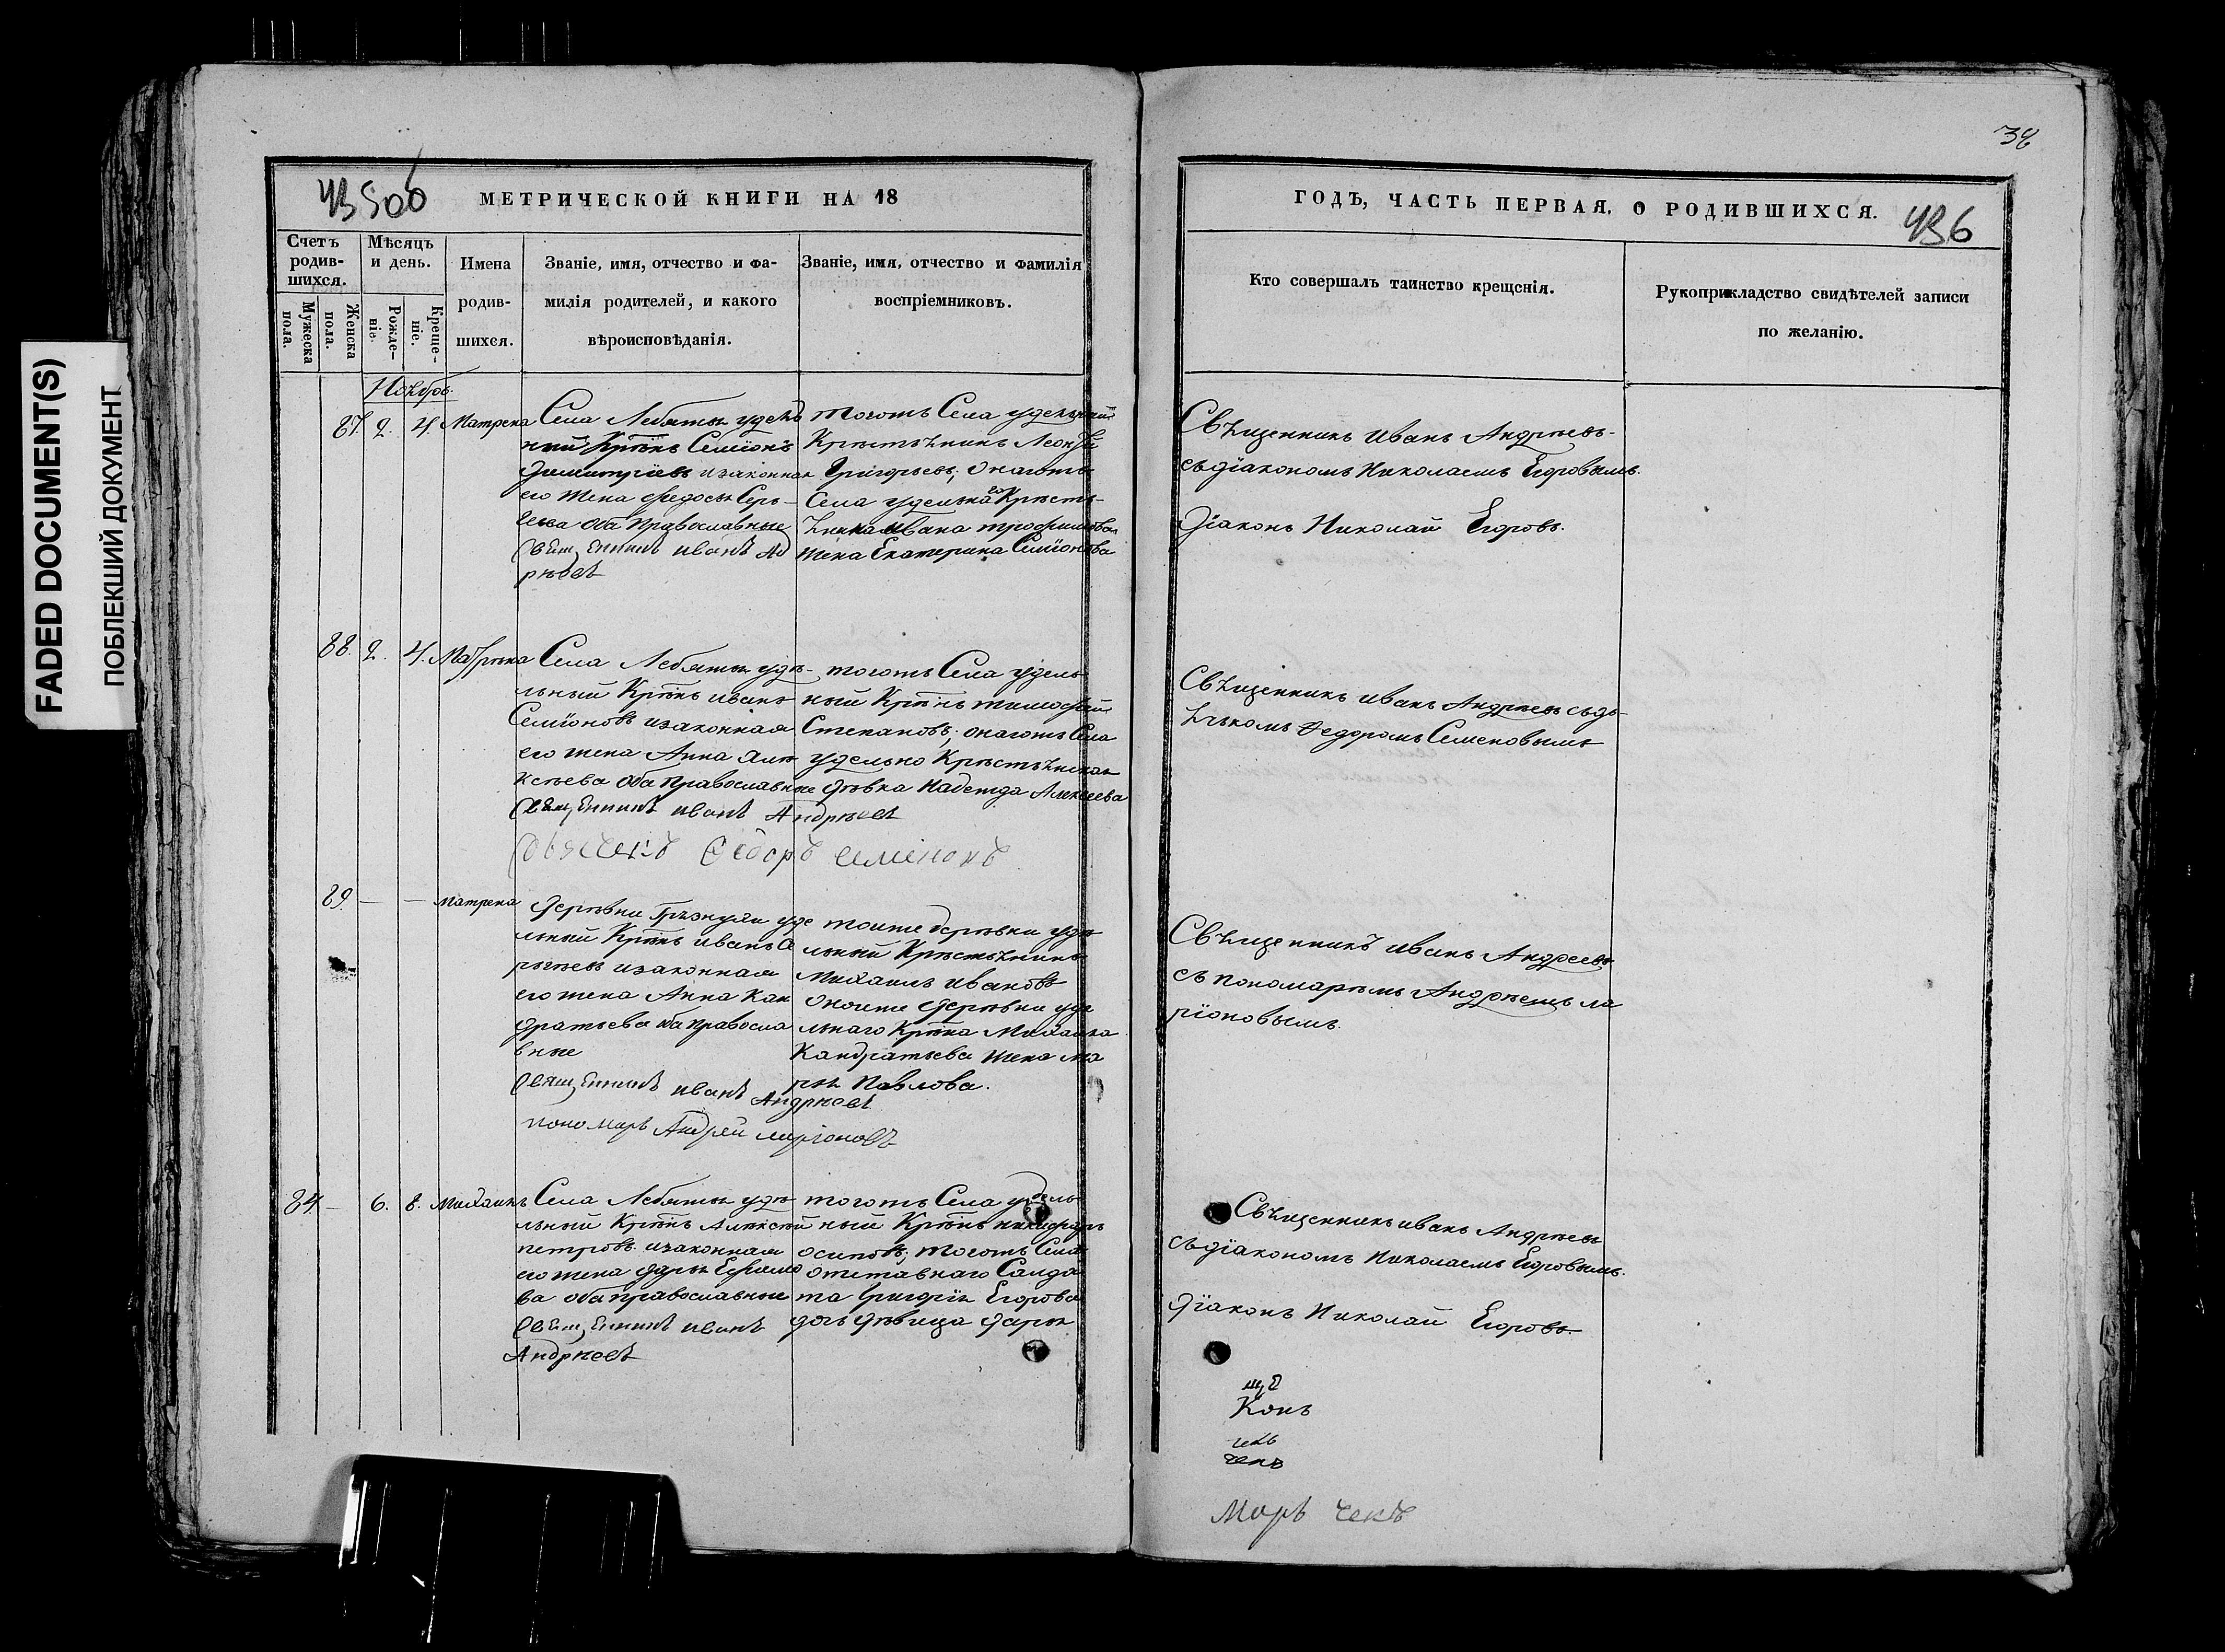 FADED DOCUMENT(S)
ПОБЛЕКШИЙ ДОКУМЕНТ
38
506
МЕТРИЧЕСКОЙ КНИГИ НА 18
Счетъ родив-шихся.
Мужеска пола.
Женска пола.
Мѣсяцъ и день.
Рожде-нiе.
Креще-нiе.
Имена
родив-
шихся.
Званiе, имя, отчество и фа-
милiя родителей, и какого
вѣроисповѣданiя.
Званiе, имя, отчество и фамилiя
воспрiемниковъ.
Ноѧбрь.
87. 2. 4. Матрена
Села Лебяжья удель
ный Крѣнъ Семiонъ
Димитрiевъ изаконная
его жена Федосья Сер-
геева оба православные
Священникъ иванъ Ан
рѣевъ
тогожъ Села удельный
Крѣстьѧнинъ Леонтiй
Григорьевъ; онагожъ
Села удельнаго Крѣсть-
ѧнина Ивана трофимова
жена Екатерина Семiонова
88. 2. 4. Матрѣна
Села Лебяжья удѣ-
льный Крѣнъ иванъ
Семiоновъ изаконная
его жена Анна Але
ксѣева оба православные
Священникъ иванъ Андрѣевъ
Федоръ семионовъ
тогожъ Села удель
ный Крѣнъ тимофей
Степановъ; онагожъ Села
удельно Крѣстьѧнская
дѣвка Надежда Алексеева
89. — — матрена
льный Крѣнъ иванъ
изаконная
его жена Анна Кан
дратьева оба правосла
вные
Священникъ иванъ Андрѣевъ
пономарь Андрей ларiоновъ
тоиже дерѣвни удѣ
льный Крѣстьѧнинъ
Михаилъ ивановъ
оноиже дерѣвни уде
льнаго Крѣна Михаила
Кандратьева жена ма
рья Павлова.
84 — 6. 8. Михаилъ
Села Лебяжья удѣ
льный Крѣнъ Алексѣй
петровъ изаконная
его жена дарья Ефимо
ва оба православные
Священникъ иванъ
Андрѣевъ
тогожъ Села удель
ный Крѣнъ никифоръ
осиповъ; тогожъ Села
отставнаго Салда
та Григорiя Егорова
дочь дѣвица дарья
ГОДЪ, ЧАСТЬ ПЕРВАЯ, О РОДИВШИХСЯ.
436
Кто совершалъ таинство крещенiя.
Рукоприкладство свидѣтелей записи
по желанiю.
Свѧщенникъ иванъ Андрѣевъ
съ дiакономъ Николаемъ Егоровымъ.
Дiаконъ Николай Егоровъ.
Свѧщенникъ иванъ Андрѣевъ съ дь-
ѧчькомъ Федоромъ Семеновымъ
Свѧщенникъ иванъ Андреевъ
съ пономарѣмъ Андрѣемъ ла
рiоновымъ.
Свѧщенникъ иванъ Андрѣевъ
съ дiакономъ Николаемъ Егоровымъ.
Дiаконъ Николай Егоровъ.
ще
Конъ
чекъ
марь чекъ